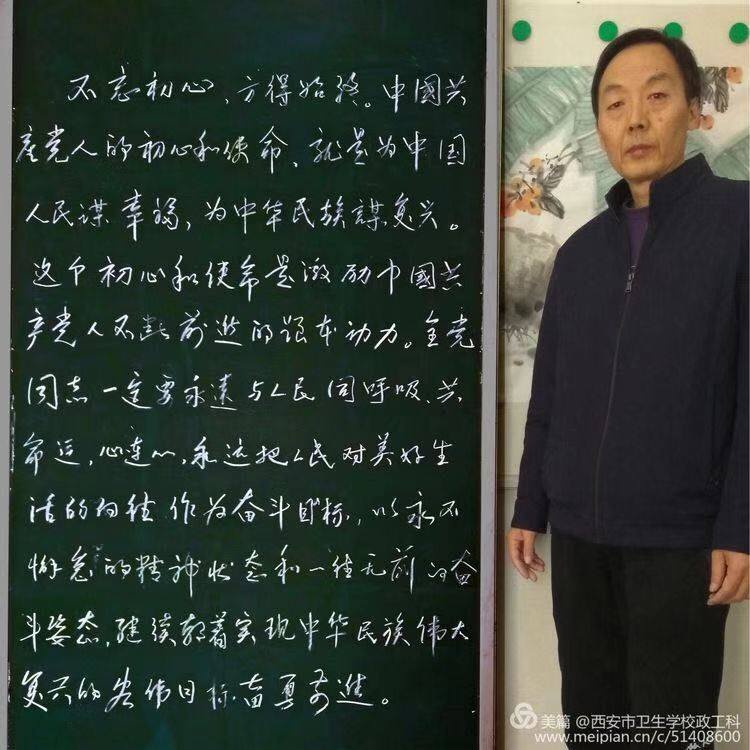 不忘初心，方得始终。中國共
產党人的初心和使命，就是为中国
人民谋幸福，为中华民族謀复兴。
这个初心和使命是激励中國共
产党人不断前进的跟本动力。全党
同志一定要永远与人民同呼吸、共
命运、心连心，永远把人民对美好生
活的向往作为奋斗目标，以永不
懈怠的精神状态和一往无前的奋
斗姿态，继续朝着实现中华民族伟大
复兴的宏伟目标奋勇前進。
美篇 @西安市卫生学校政工科
www.meipian.cn/c/51408600